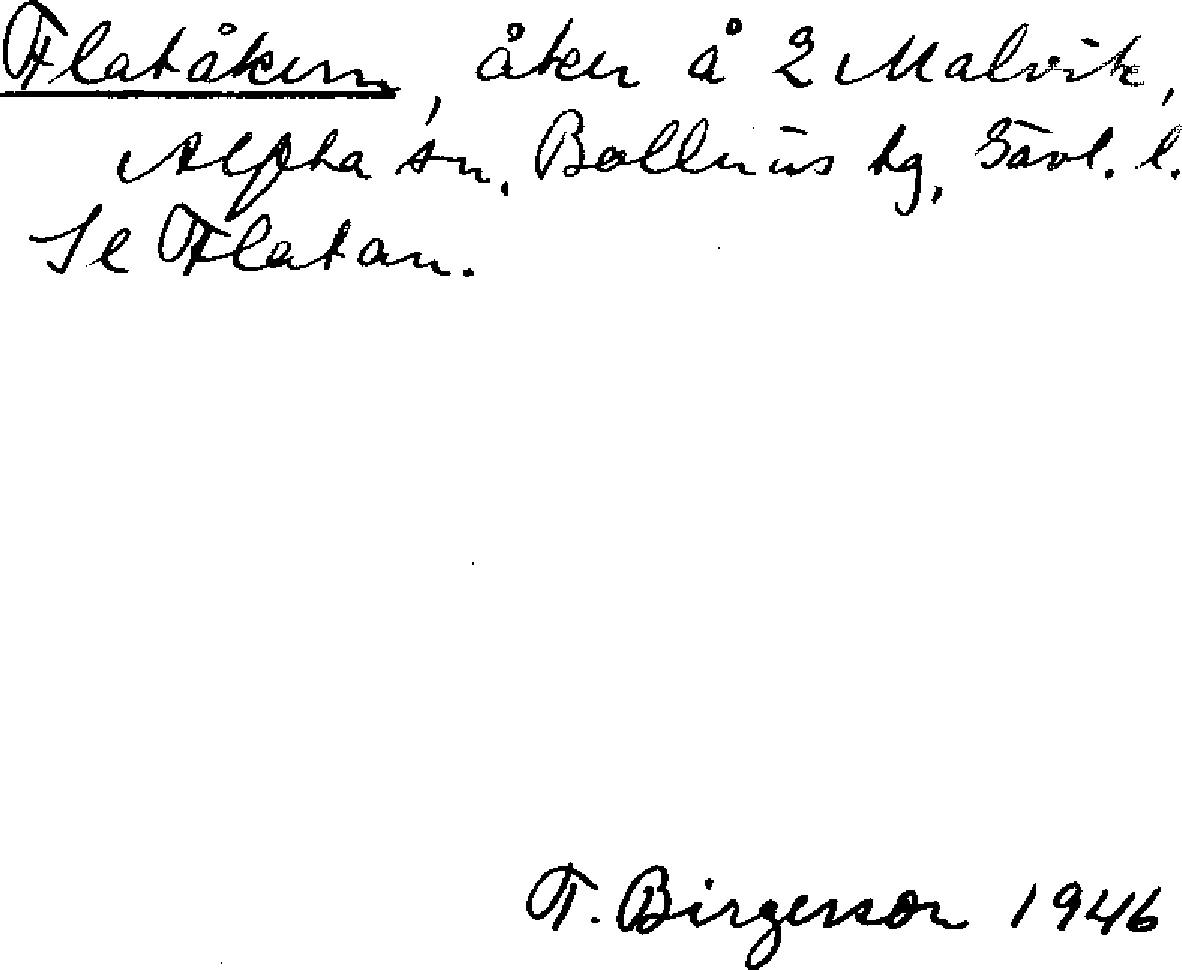 Flatåkern, åker å 2 Malvik,
Alfta sn, Bollnäs tg, Gävl. l.
Se Flatan.
F. Birgerson 1946